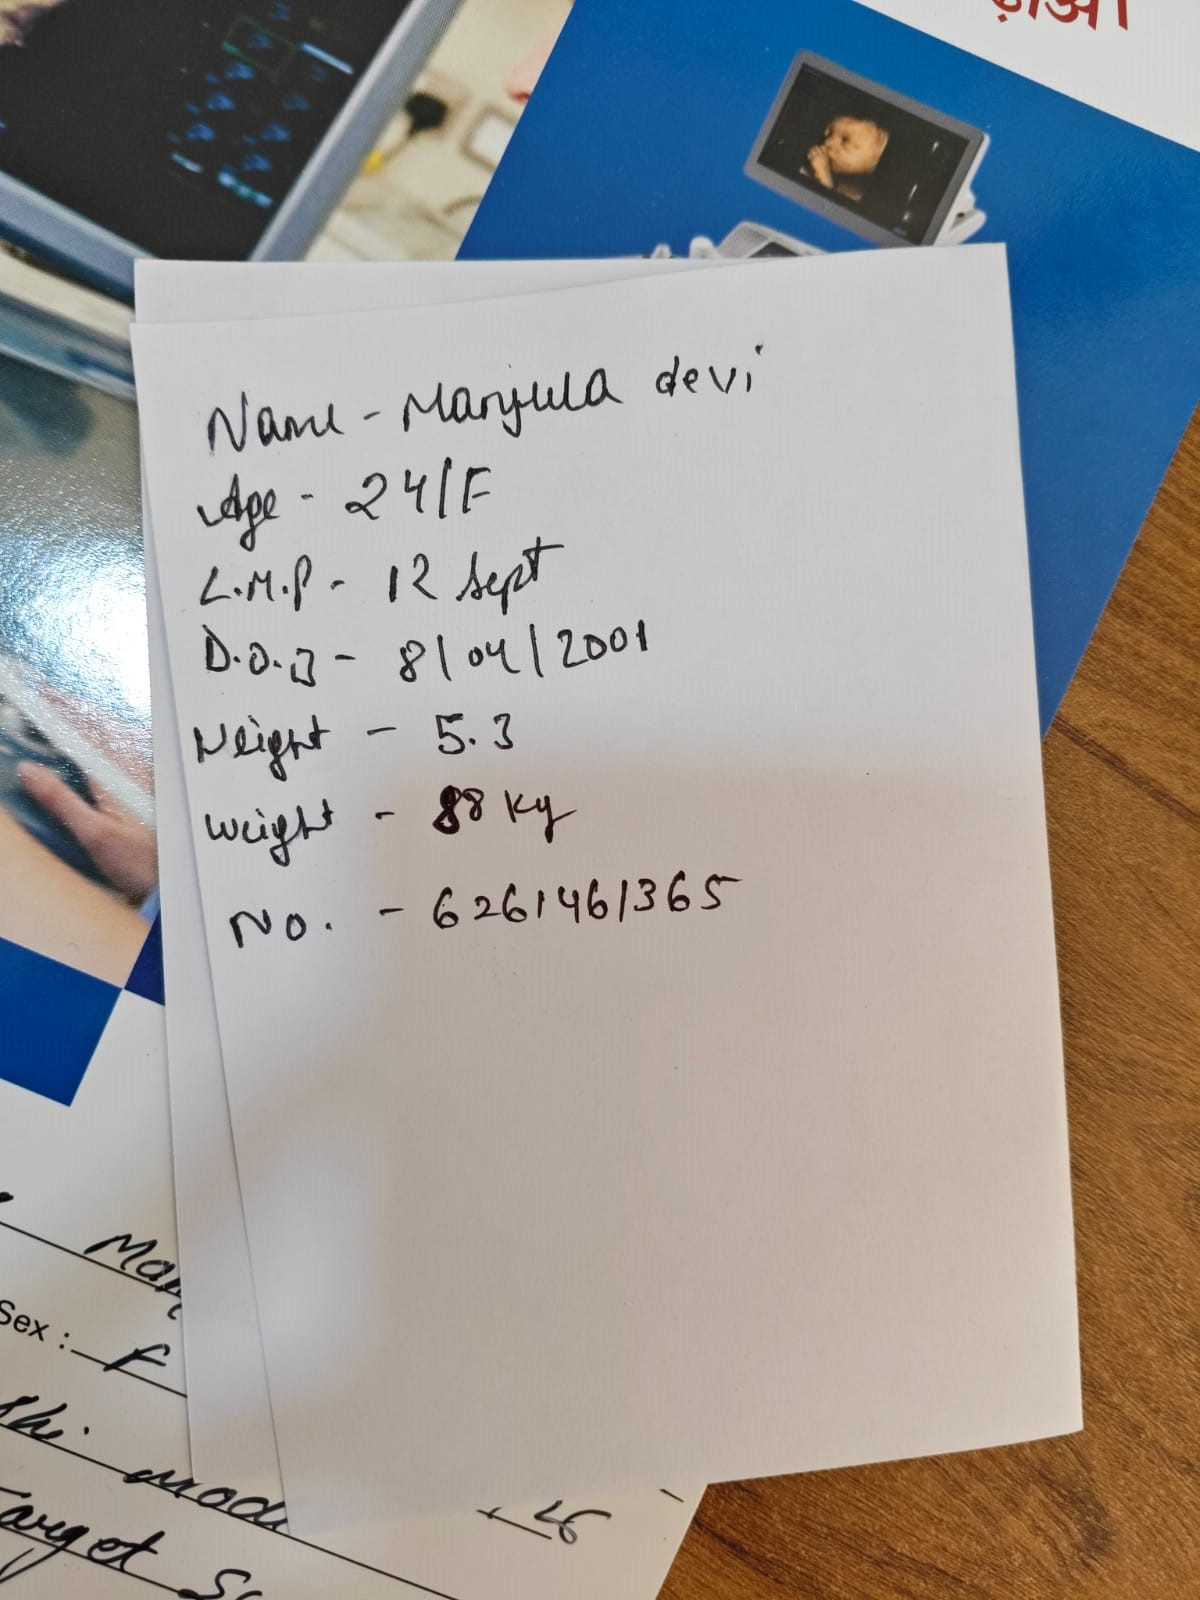 ढ़ाओ।
Name - Manjula devi
Age - 24/F
L.M.P - 12 Sept
D.O.B - 8/04/2001
Height - 5.3
Weight - 88 Kg
No. - 6261461365
Man
Sex : F
Target